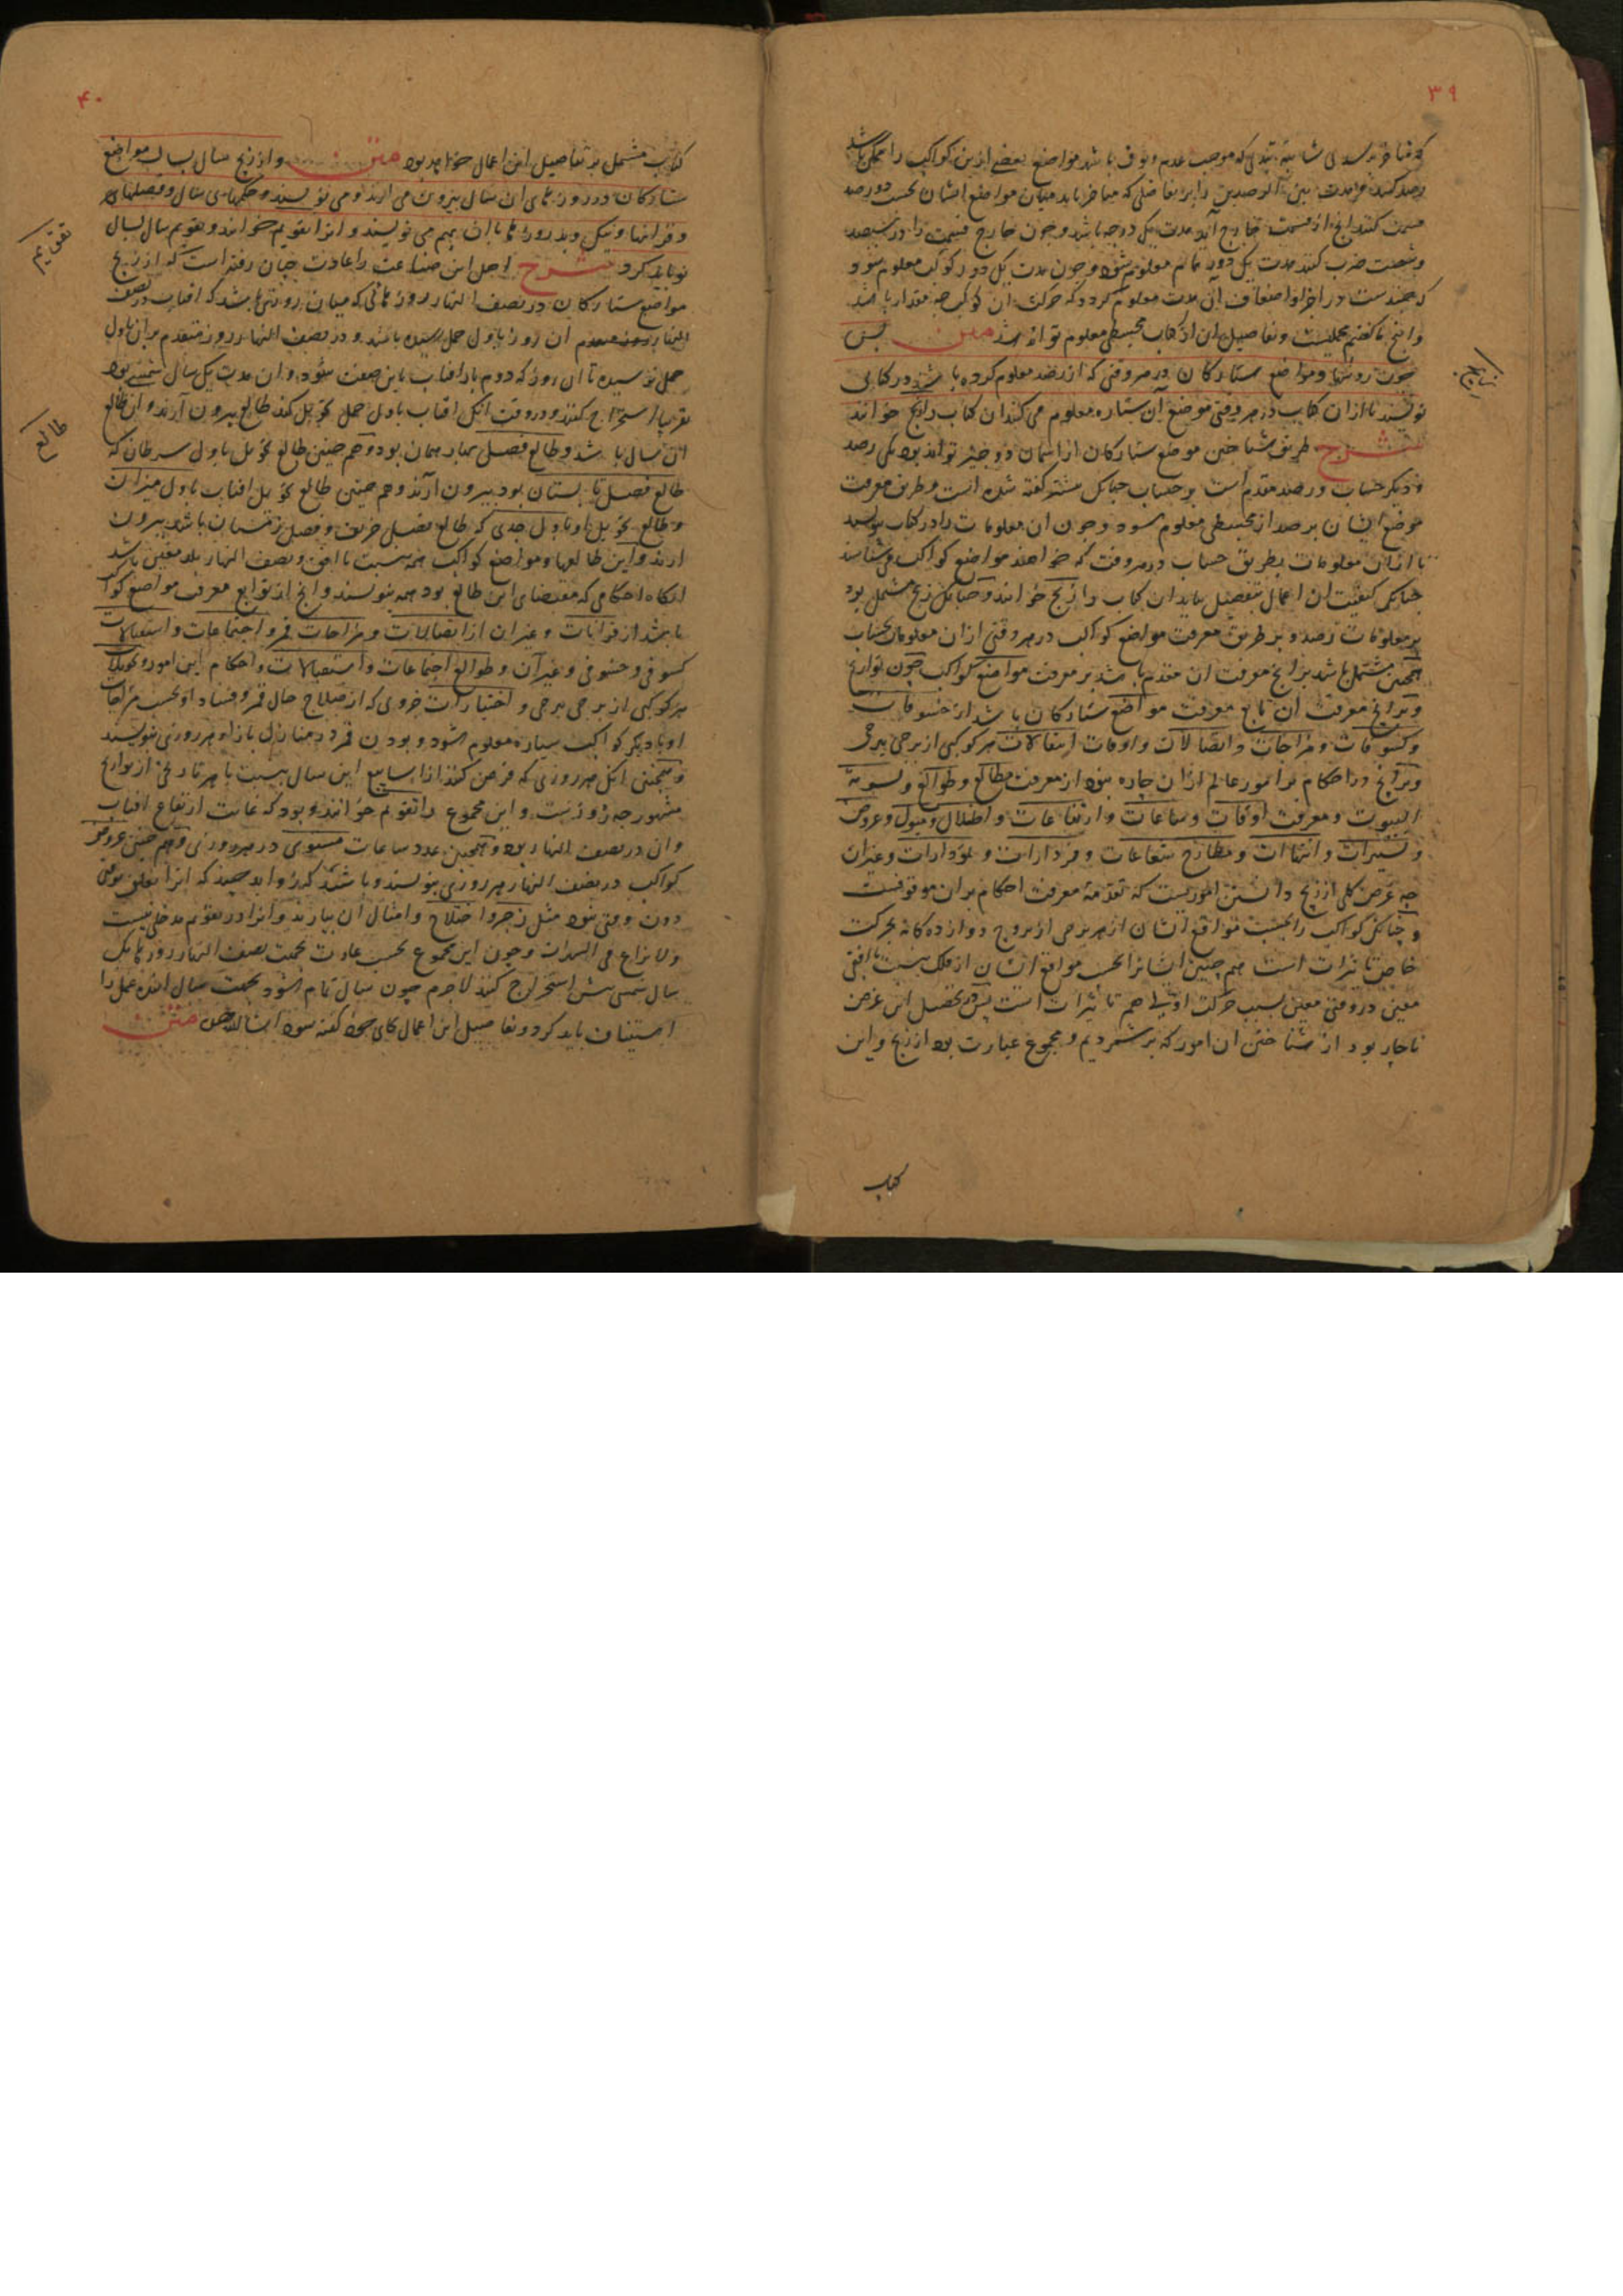 ۳۹
که متأخر رسد بی شائبه تبدلی که موجب عدم وثوق باشد مواضع بعضی ازین کواکب را ممکن باشد
رصد کنند و مدت بین الرصدین را بر تفاضلی که میان مواضع ایشان بحسب دو رصد
قسمت کنند آنچه از قسمت خارج آید مدت یک درجه باشد و چون خارج قسمت را در سیصد
و شصت ضرب کنند مدت یک دور تمام معلوم شود و چون مدت یک دور کوکب معلوم شود
که چندست در اجزا و اضعاف آن مدت معلوم گردد که حرکت آن کوکب چه مقدار باشد
و آنچ ناگفتیم و تفاصیل آن از کتاب مجسطی معلوم تواند شد متن پس
چون روشها و مواضع ستارگان در هر وقتی که از رصد معلوم کرده باشند در کتابی
نویسند تا از آن کتاب در هر وقتی موضع آن ستاره معلوم می کنند آن کتاب را زیج خوانند
زیج
شرح طریق شناختن موضع ستارگان از آسمان دو چیز تواند بود یکی رصد
و دیگر حساب و رصد مقدم است بر حساب چنانک گفته شده است و طریق معرفت
موضع ایشان برصد از مجسطی معلوم شود و چون آن معلومات را در کتاب نویسند
تا از آن معلومات بطریق حساب در هر وقت که خواهند مواضع کواکب می شناسند
چنانک کیفیت آن اعمال بتفصیل بیاید آن کتاب را زیج خوانند و چنانک زیج مشتمل بود
بر معلومات رصد و بر طریق معرفت مواضع کواکب در هر وقتی از آن معلومات بحساب
همچنین مشتمل باشد بر آنچ معرفت آن مقدم باشد بر معرفت مواضع کواکب چون تواریخ
و بر آنچ معرفت آن تابع معرفت مواضع ستارگان باشد از خسوفات
و کسوفات و مزاجات و اتصالات و اوقات انتقالات هر کوکبی از برجی ببرجی
و بر آنچ در احکام بر امور عالم از آن چاره نبود از معرفت مطالع و طوالع و تسویة
البیوت و معرفت اوقات و ساعات و ارتفاعات و اظلال و میول و عروض
و تسییرات و انتهاآت و مطارح شعاعات و فردارات و ادوارات و غیر آن
چه غرض کلی از زیج دانستن اموریست که تقدمه معرفت احکام بر آن موقوفست
و چنانک کواکب را بحسب مواقع ایشان از هر برجی از بروج دوازده گانه بحرکت
خاص تاثیرات است هم چنین ایشانرا بحسب مواقع ایشان از فلک بنسبت با افقی
معین در وقتی معین بسبب حرکت اولی هم تاثیرات است پس در تحصیل این غرض
ناچار بود از شناختن آن امور که برشمردیم و مجموع عبارت بود از زیج و این
کتاب
۴۰
کتاب مشتمل بر تفاصیل این اعمال خواهد بود متن و از زیج سال بسال مواضع
ستارگان در روزهای آن سال بیرون می آرند و می نویسند و حکمهای سال و فصلهای
و قرانها و نیک و بد روزها با آن بهم می نویسند و آنرا تقویم خوانند و تقویم سال بسال
تقویم
نو باید کرد شرح اهل این صناعت را عادت چنان رفته است که از زیج
مواضع ستارگان در نصف النهار روزهائی که میان روزی باشد که آفتاب در نصف
النهار آن روز باول حمل رسیده باشد و در نصف النهار روز متقدم بر آن باول
حمل نرسیده تا آن روز که دوم بار آفتاب باین صفت شود و آن مدت یک سال شمسی بود
تقریبا استخراج کنند و در وقت آنک آفتاب باول حمل تحویل کند طالع بیرون آرند و آن طالع
طالع
آن سال باشد و طالع فصل بهار همان بود و هم چنین طالع تحویل باول سرطان که
طالع فصل تابستان بود بیرون آرند و هم چنین طالع تحویل آفتاب باول میزان
و طالع تحویل او باول جدی که طالع فصل خریف و فصل زمستان باشد بیرون
آرند و این طالعها و مواضع کواکب همه بنسبت با افق و نصف النهار بلد معین باشد
آنگاه احکامی که مقتضای این طالع بود همه بنویسند و آنچ از توابع معرفت مواضع کواکب
باشد از قرانات و غیر آن از اتصالات و مزاجات قمر و اجتماعات و استقبالات
کسوفی و خسوفی و غیر آن و طوالع اجتماعات و استقبالات و احکام این امور و تحویلات
هر کوکبی از برجی ببرجی و اختیارات جزوی که از صلاح حال قمر و فساد او بحسب مزاجات
او با دیگر کواکب سیاره معلوم شود و بودن قمر در منازل باز او هر روزی بنویسند
و همچنین آنک هر روزی که فرض کنند از اسابیع این سال بنسبت با هر تاریخی از تواریخ
مشهور چه روزست و این مجموع را تقویم خوانند و بود که غایت ارتفاع آفتاب
و آن در نصف النهار بود و همچنین عدد ساعات مستوی در هر روزی و هم چنین عروض
کواکب در نصف النهار هر روزی بنویسند و باشد که زواید چند که آنرا تعلق بوقتی
دون وقتی نبود مثل زجر و اختلاج و امثال آن بیارند و آنرا در تقویم مدخلی نیست
و لا نزاع فی الشهرات و چون این مجموع بحسب عادت بجهت نصف النهار روزهای یک
سال شمسی بیش استخراج نکنند لاجرم چون سال تمام شود بجهت سال آینده عمل را
استیناف باید کرد و تفاصیل این اعمال بجای خود گفته شود ان شاء الله متن